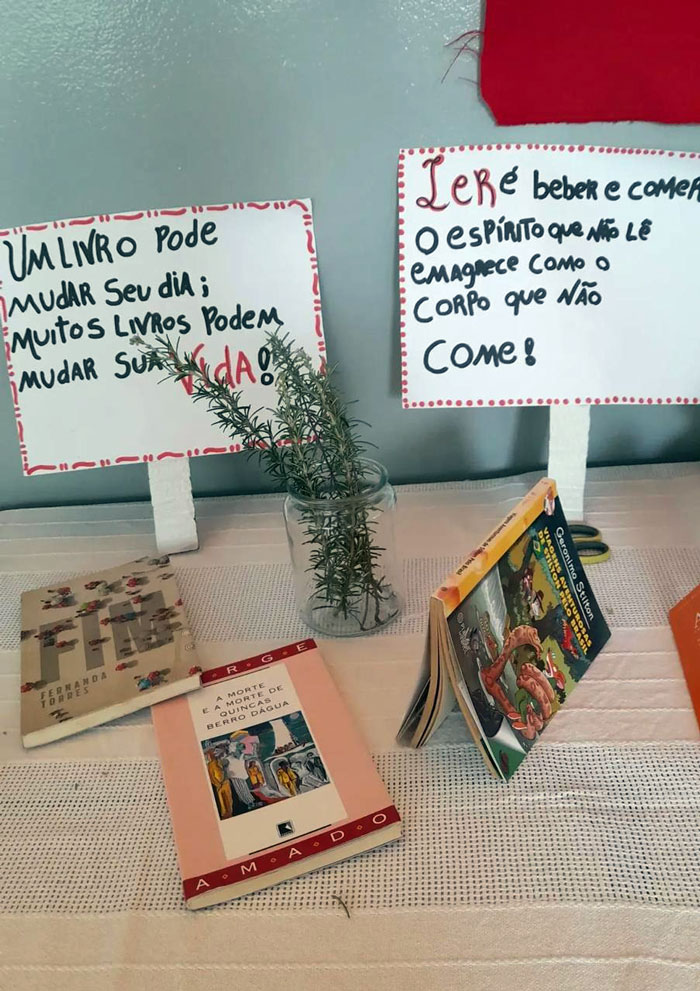 UM LIVRO PODE
MUDAR SEU DIA;
MUITOS LIVROS PODEM
MUDAR SUA VIDA!
LER é beber e comer
O ESPÍRITO que NÃO LÊ
EMAGRECE COMO O
CORPO que NÃO
COME!
FIM
FERNANDA
TORRES
RGE
A MORTE
E A MORTE DE
QUINCAS
BERRO DÁGUA
AMADO
Geronimo Stilton
VIAGENS AVENTUROSAS
DE STILTON PELO BRASIL